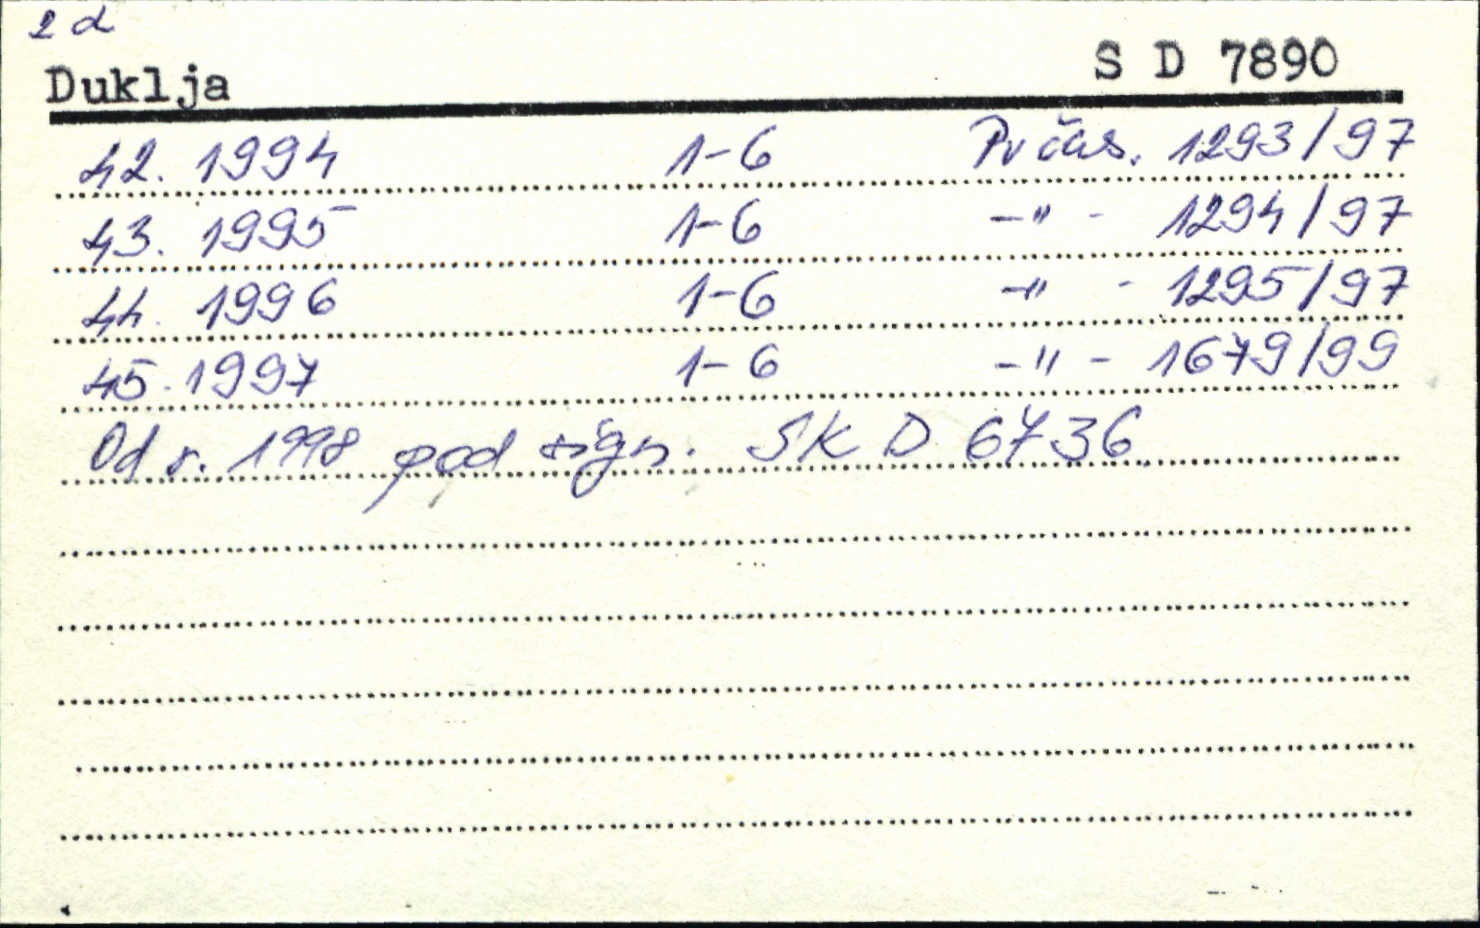 2d
Duklja S D 7890
42. 1994 1-6 Pr čas. 1293/97
43. 1995 1-6 -"- 1294/97
44. 1996 1-6 -"- 1295/97
45. 1997 1-6 -"- 1679/99
Od r. 1998 pod sign. SK D 6736